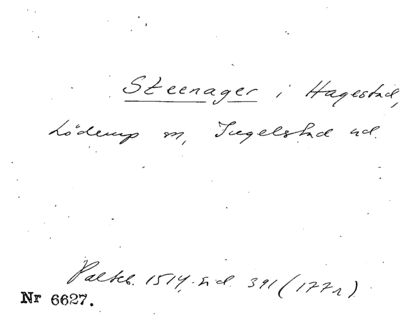 Steenager i Hagestad,
Löderup sn, Ingelstad hd.
Palteb. 1514. sid. 391 (177r).
Nr 6627.